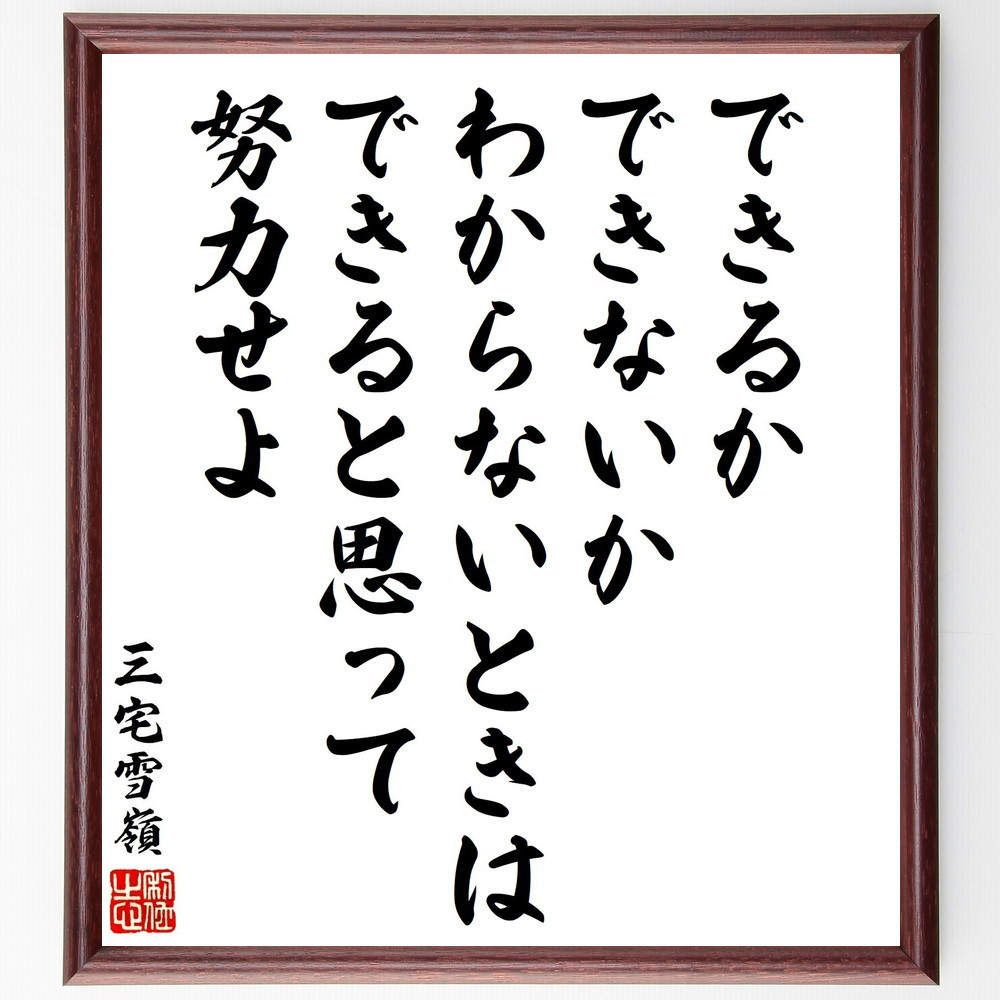 できるか
できないか
わからないときは
できると思って
努力せよ
三宅雪嶺